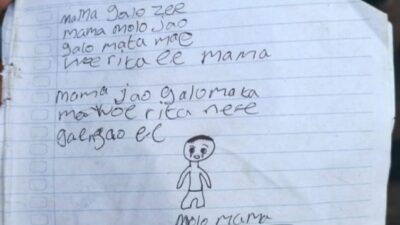 mama galo zee
mama molo jao
galo mata mae
woe rita ee mama
mama jao galo mata
mae woe rita nese
gaengao ee
molo mama